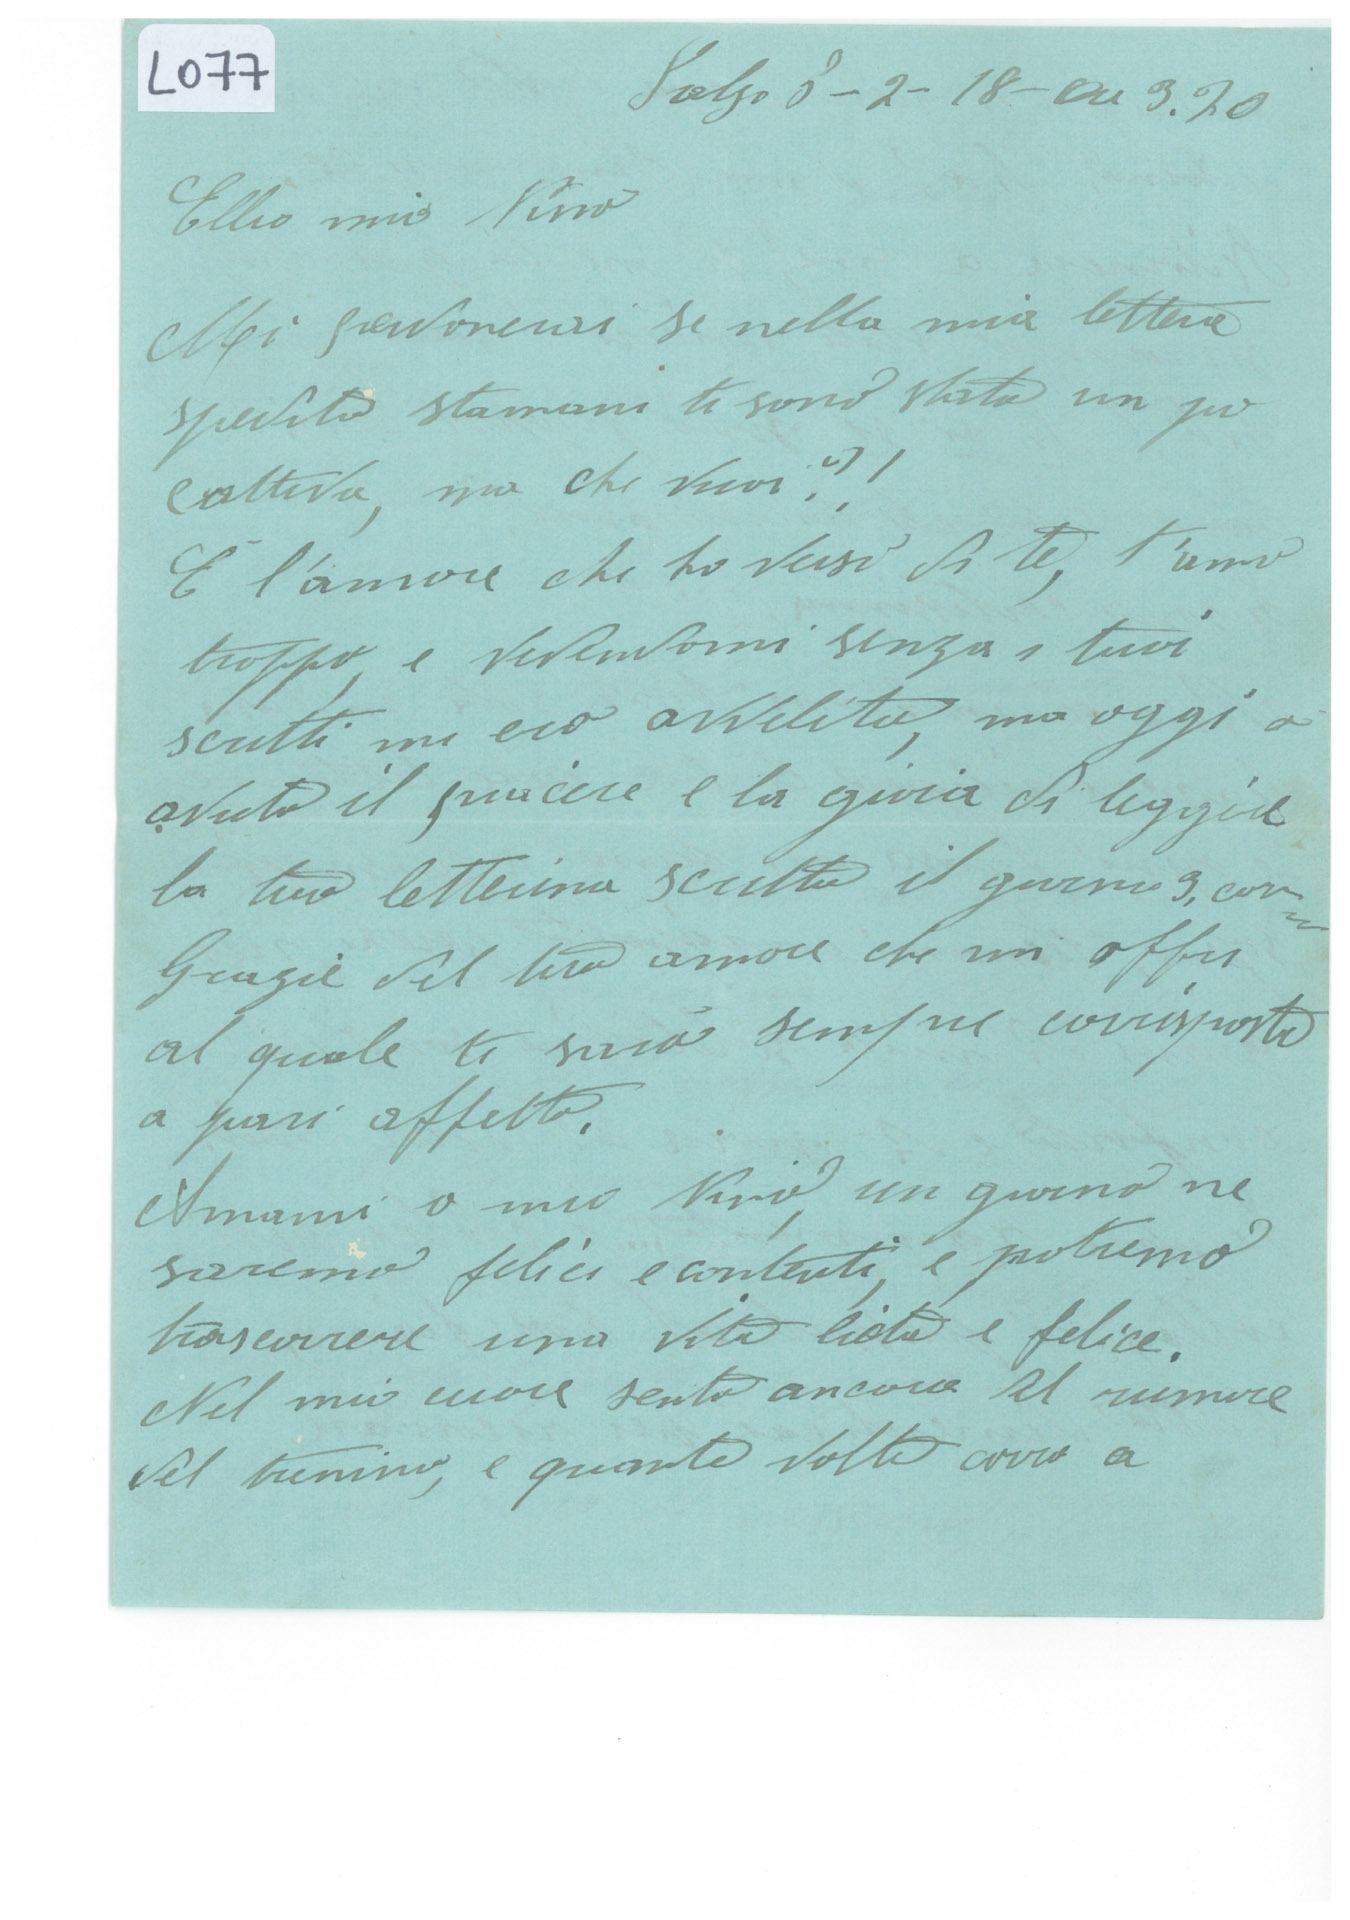 L077
Salso 8-2-18- Ore 3.20
Ellio mio Nino
Mi perdonerai se nella mia lettera
spedita stamani ti sono stata un po
cattiva, ma che vuoi?!
E l'amore che ho verso di te, t'amo
troppo, e vedendomi senza i tuoi
scritti mi ero avvelita, ma oggi o
avuto il piacere e la gioia di leggere
la tua letterina scritta il giorno 3, corr
Grazie del tuo amore che mi offri
al quale ti sarà sempre corrisposto
a pari affetto.
Amami o mio Nino, un giorno ne
saremo felici e contenti, e potremo
trascorrere una vita lieta e felice.
Nel mio cuore sento ancora il rumore
del trenino, e quante volte corro a